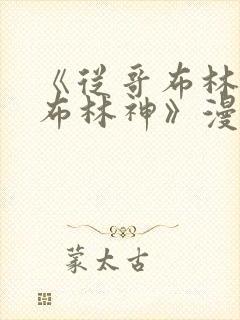 《从哥布林
布林神》漫
蒙太古